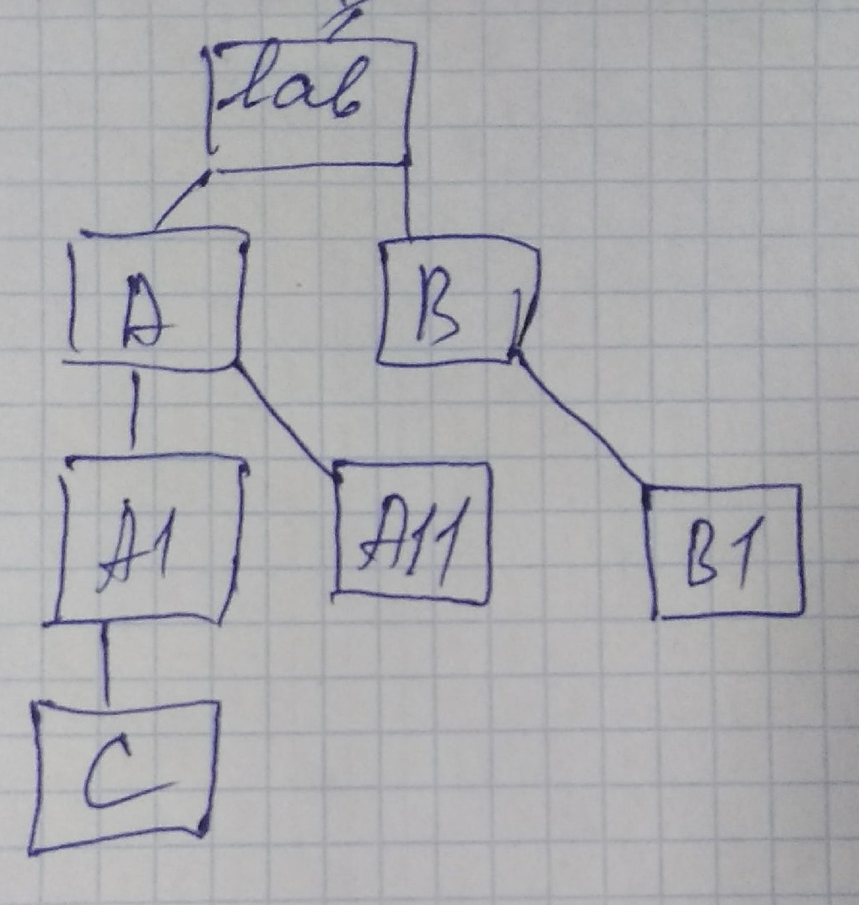 lab
A
B
A1
A11
B1
C